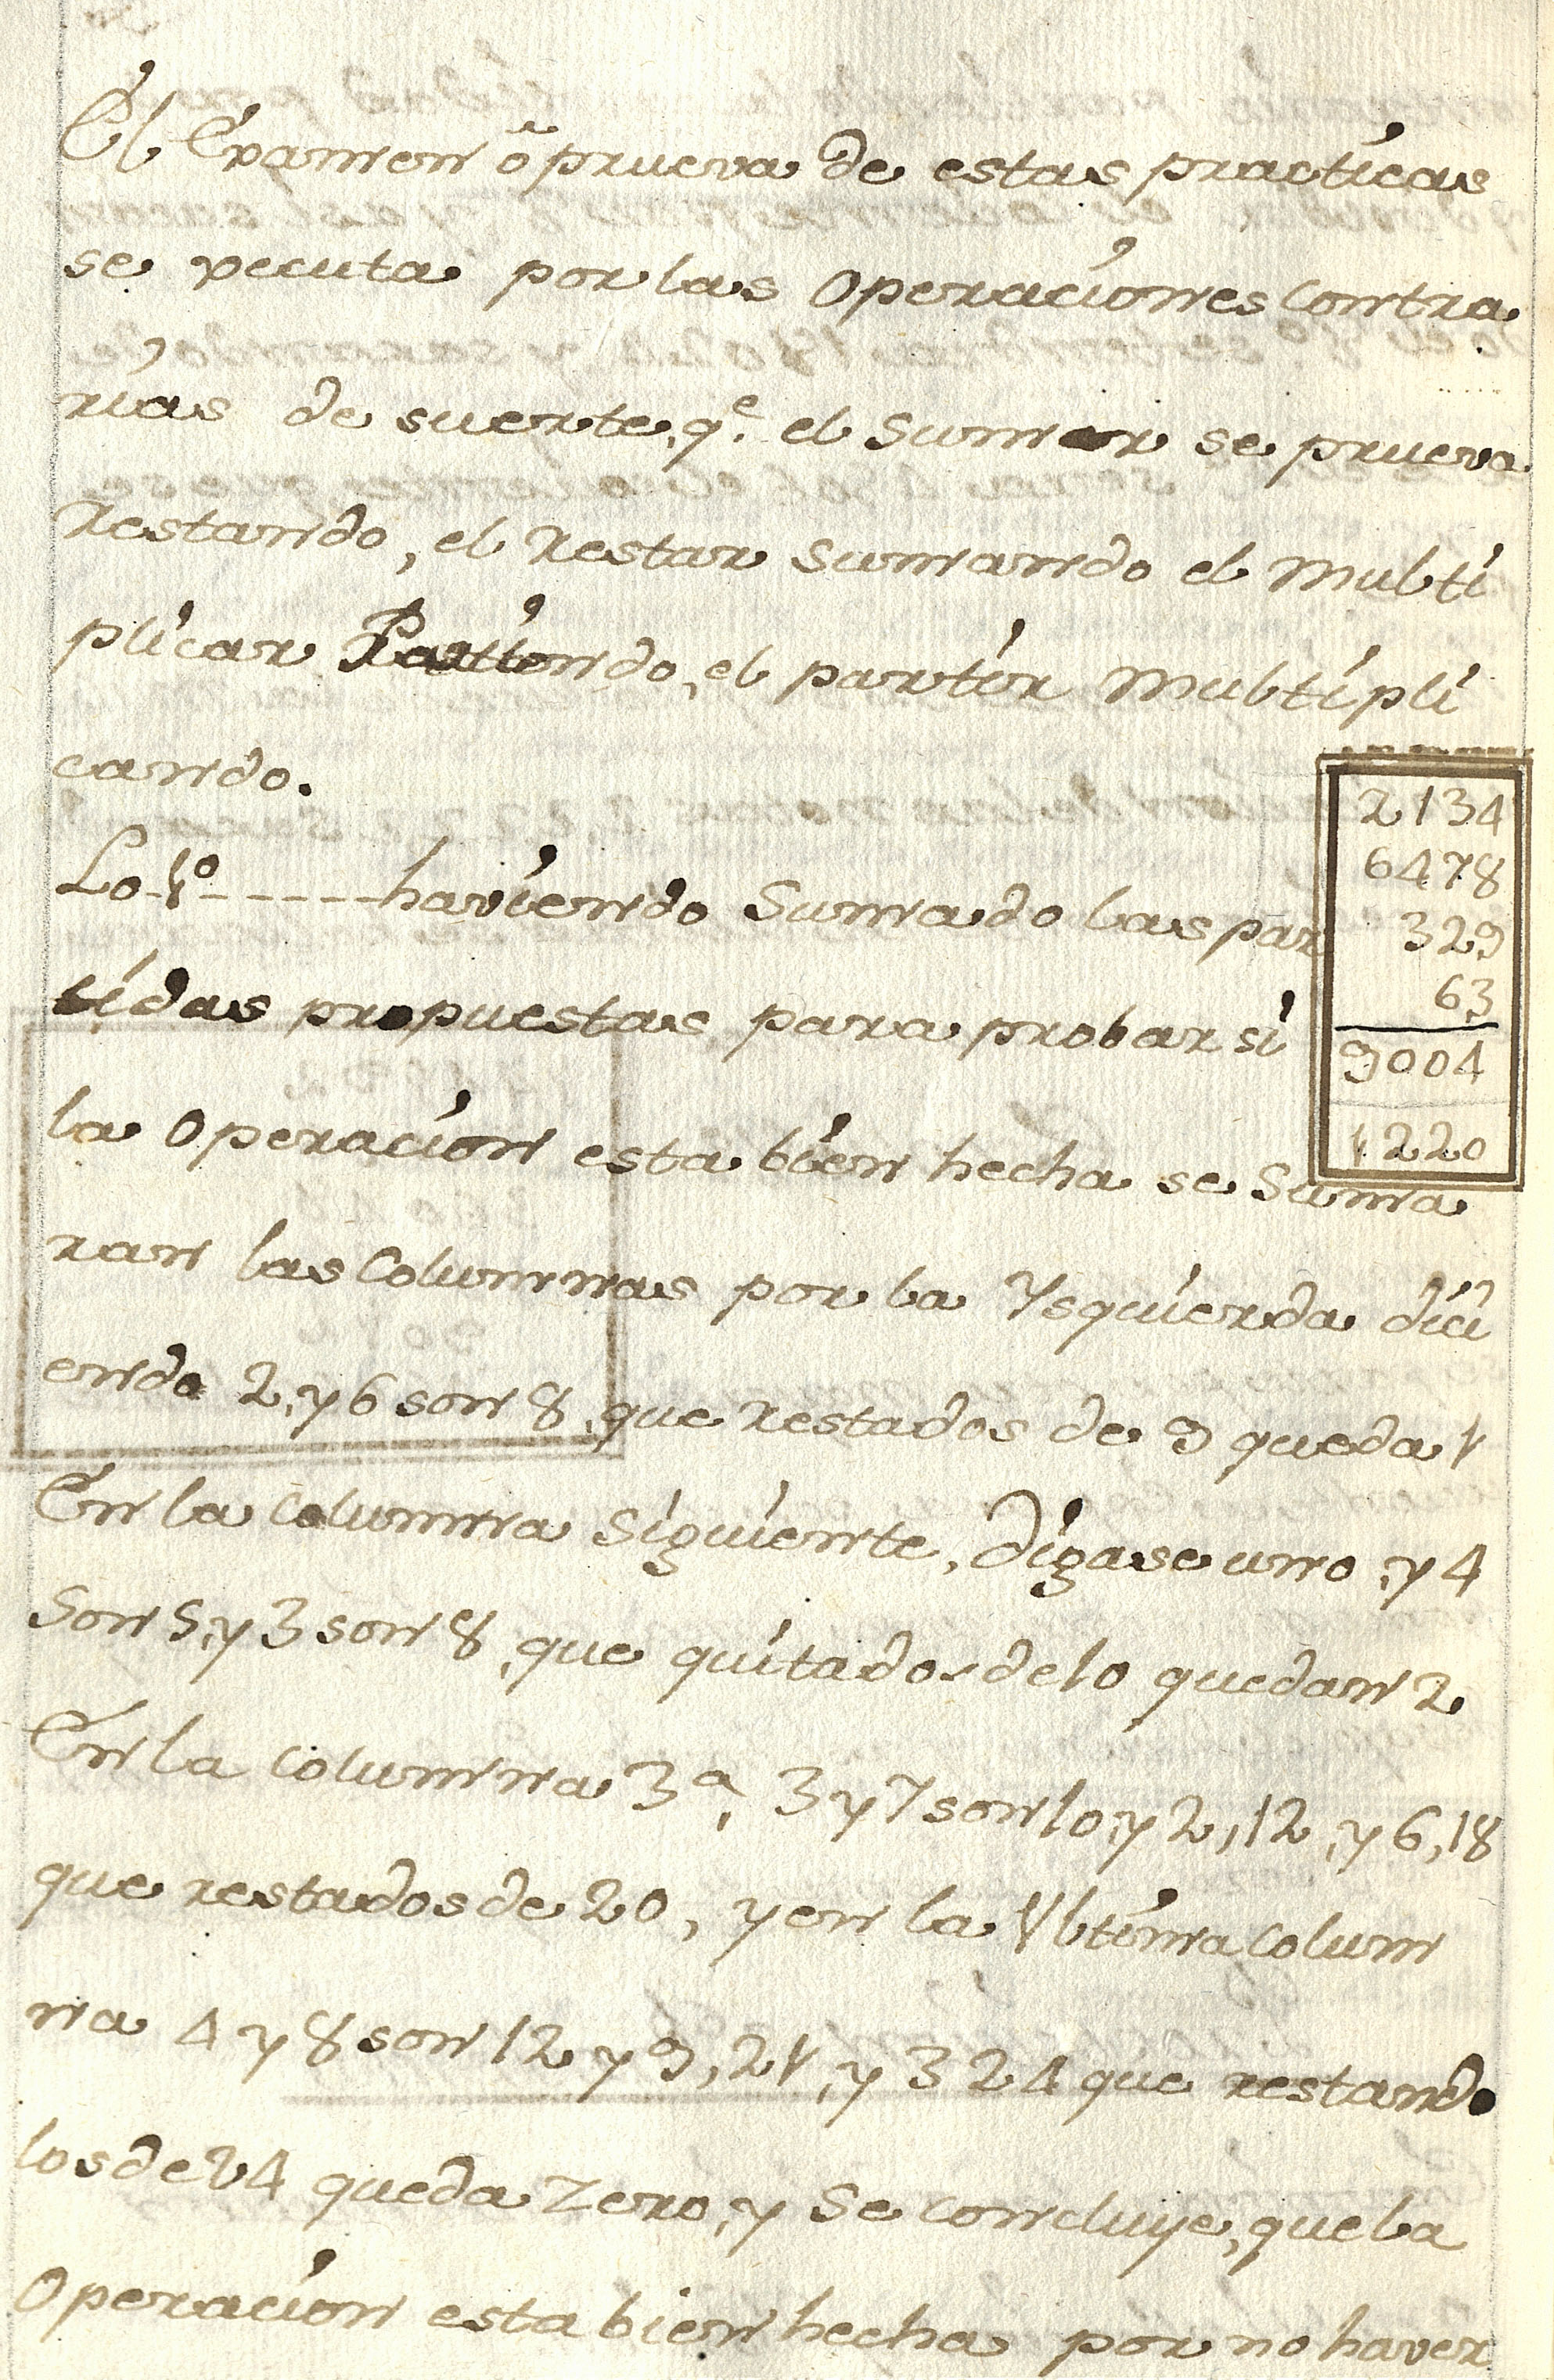 El Examen ô prueva de estas practícas
se xecuta por las Operacíones Contra
rías de suerte, qᵉ. el Sumar se prueva
Restando, el Restar Sumando el Multí
plícar Partíendo, el partír Multíplí
cando.
Lo 1º ------ havíendo Sumado las par
tídas propuestas para probar sí
la Operacíon esta bíen hecha se Suma
ran las Columnas por la Ysquíerda dící
endo 2, y 6 son 8, que restados de 9 queda 1
En la columna síguíente, dígase uno, y 4
Son 5, y 3 son 8, que quítados de 10 quedan 2
En la columna 3ª, 3 y 7 son 10, y 2, 12, y 6, 18
que restados de 20, y en la Vltíma Colum
na 4 y 8 son 12 y 9, 21, y 3 24 que restando
los de 24 queda Zero, y Se concluye, que la
Operacíon esta bien hecha por no haver
2134
6478
329
63
9004
1220